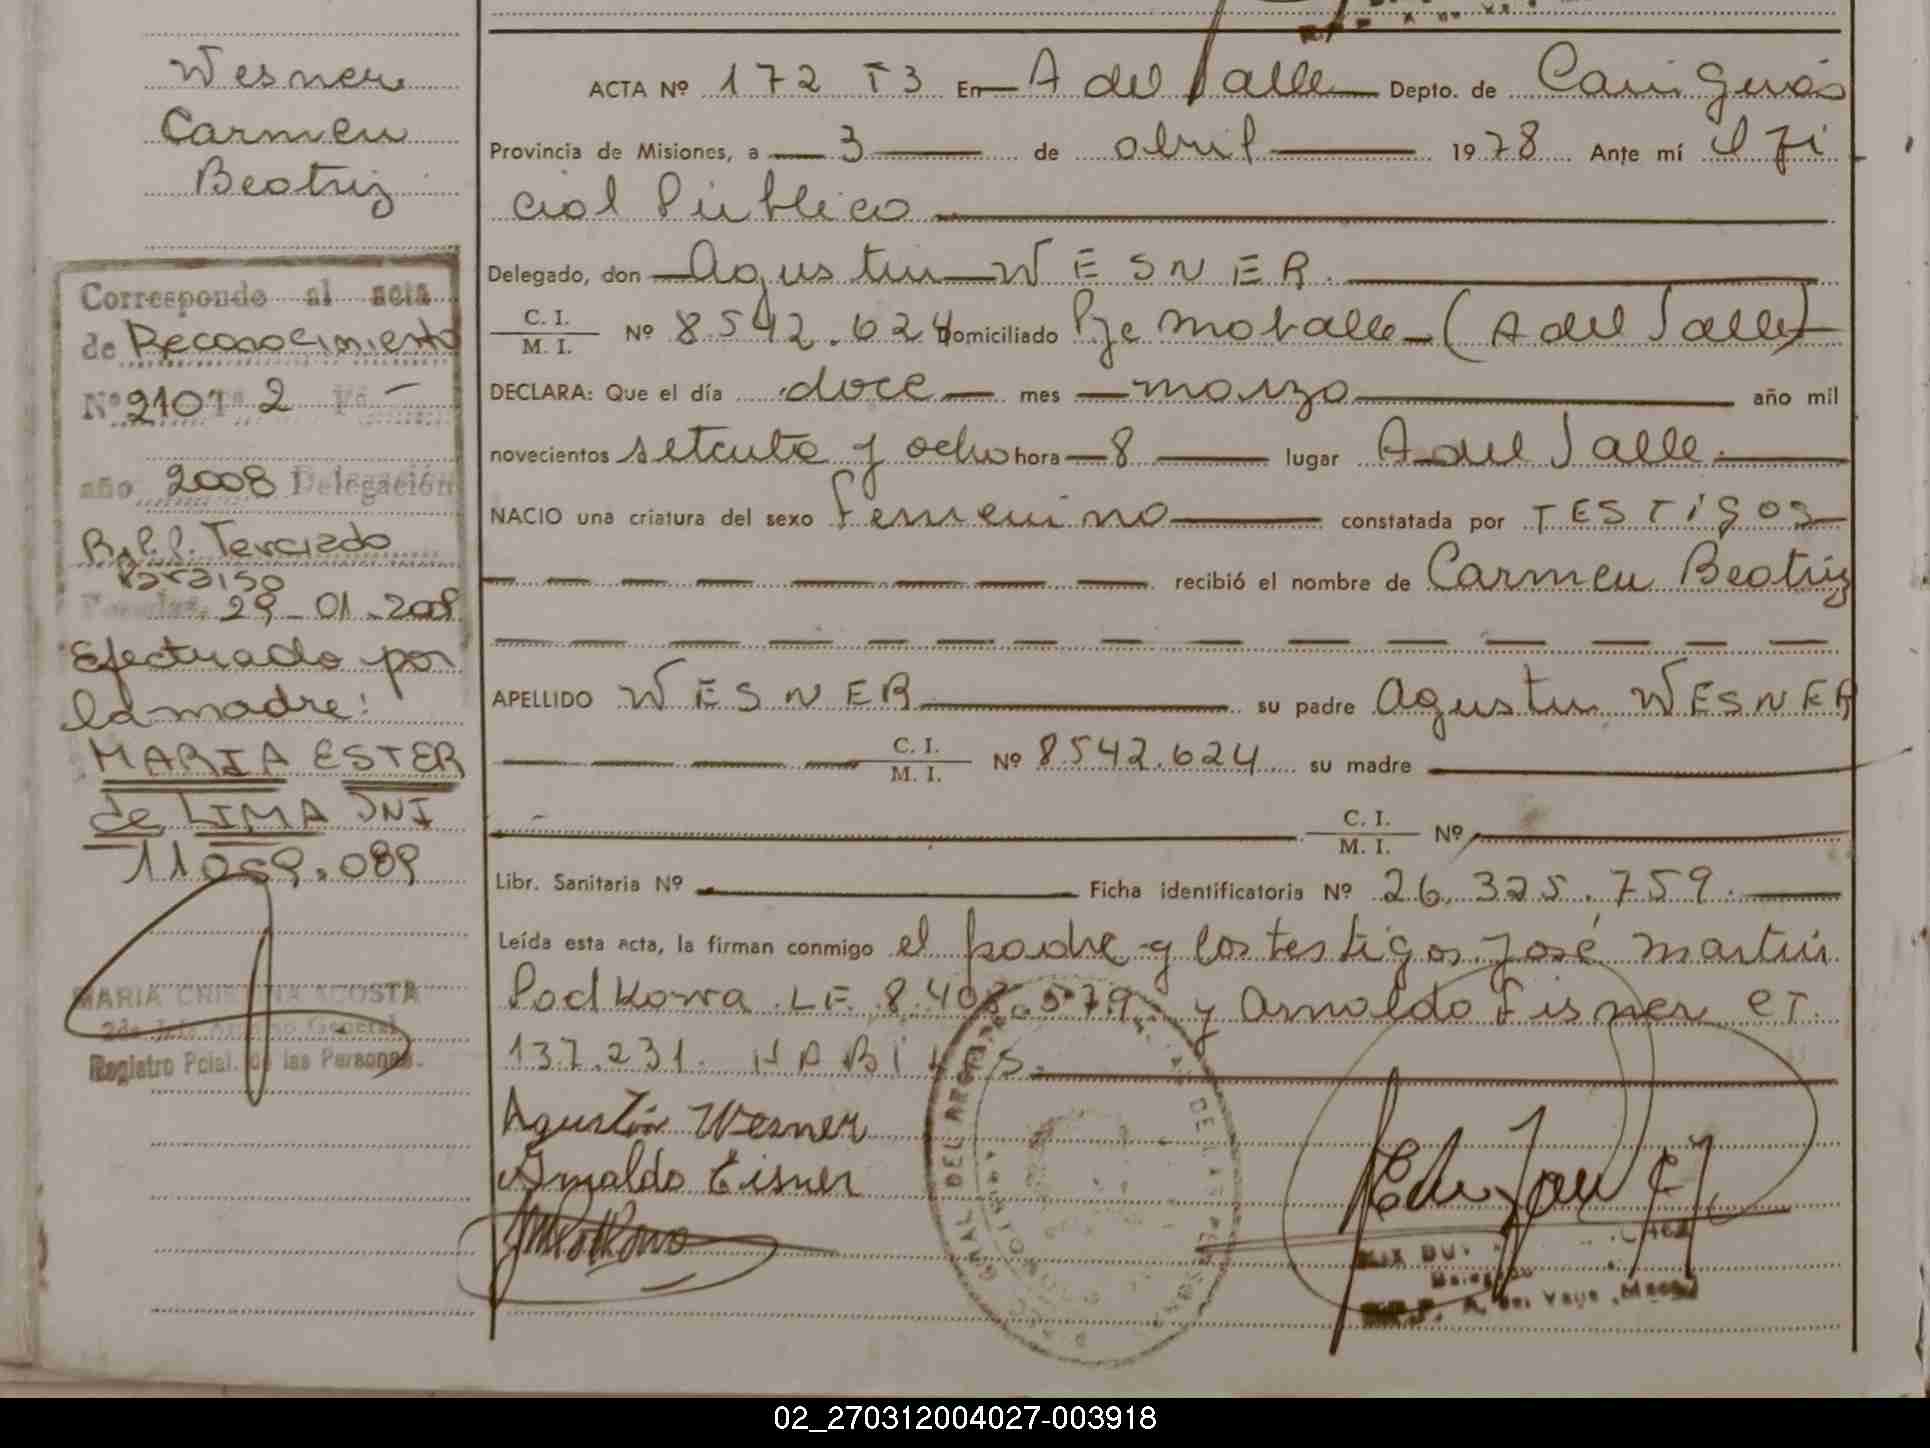 Wesner
Carmen
Beatriz
Corresponde al acta
de Reconocimiento
Nº 210 Tº 2 Fº —
año 2008 Delegación
R.P.P. Terciado
Paraiso
Posadas, 29-01-2008
Efectuado por
la madre:
MARIA ESTER
de LIMA DNI
11.059.089
MARIA CRISTINA ACOSTA
Registro Pcial. de las Personas
ACTA Nº 172 T3 En A del Valle Depto. de Cainguás
Provincia de Misiones, a 3 de abril 1978 Ante mí Ofi
cial Público
Delegado, don Agustin WESNER.
C. I.
M. I. Nº 8.542.624 Domiciliado Pje (A del Valle)
DECLARA: Que el día doce mes marzo año mil
novecientos setenta y ocho hora 8 lugar A del Valle
NACIO una criatura del sexo femenino constatada por TESTIGOS
recibió el nombre de Carmen Beatriz
APELLIDO WESNER su padre Agustin WESNER
C. I.
M. I. Nº 8.542.624 su madre
C. I.
M. I. Nº
Libr. Sanitaria Nº Ficha identificatoria Nº 26.325.759.
Leída esta acta, la firman conmigo el padre y los testigos José Martin
Podkowa LE. 8.408.579 y Arnoldo Eisner CI.
137.231. HABILES.
Agustín Wesner
Arnoldo Eisner
02_270312004027-003918